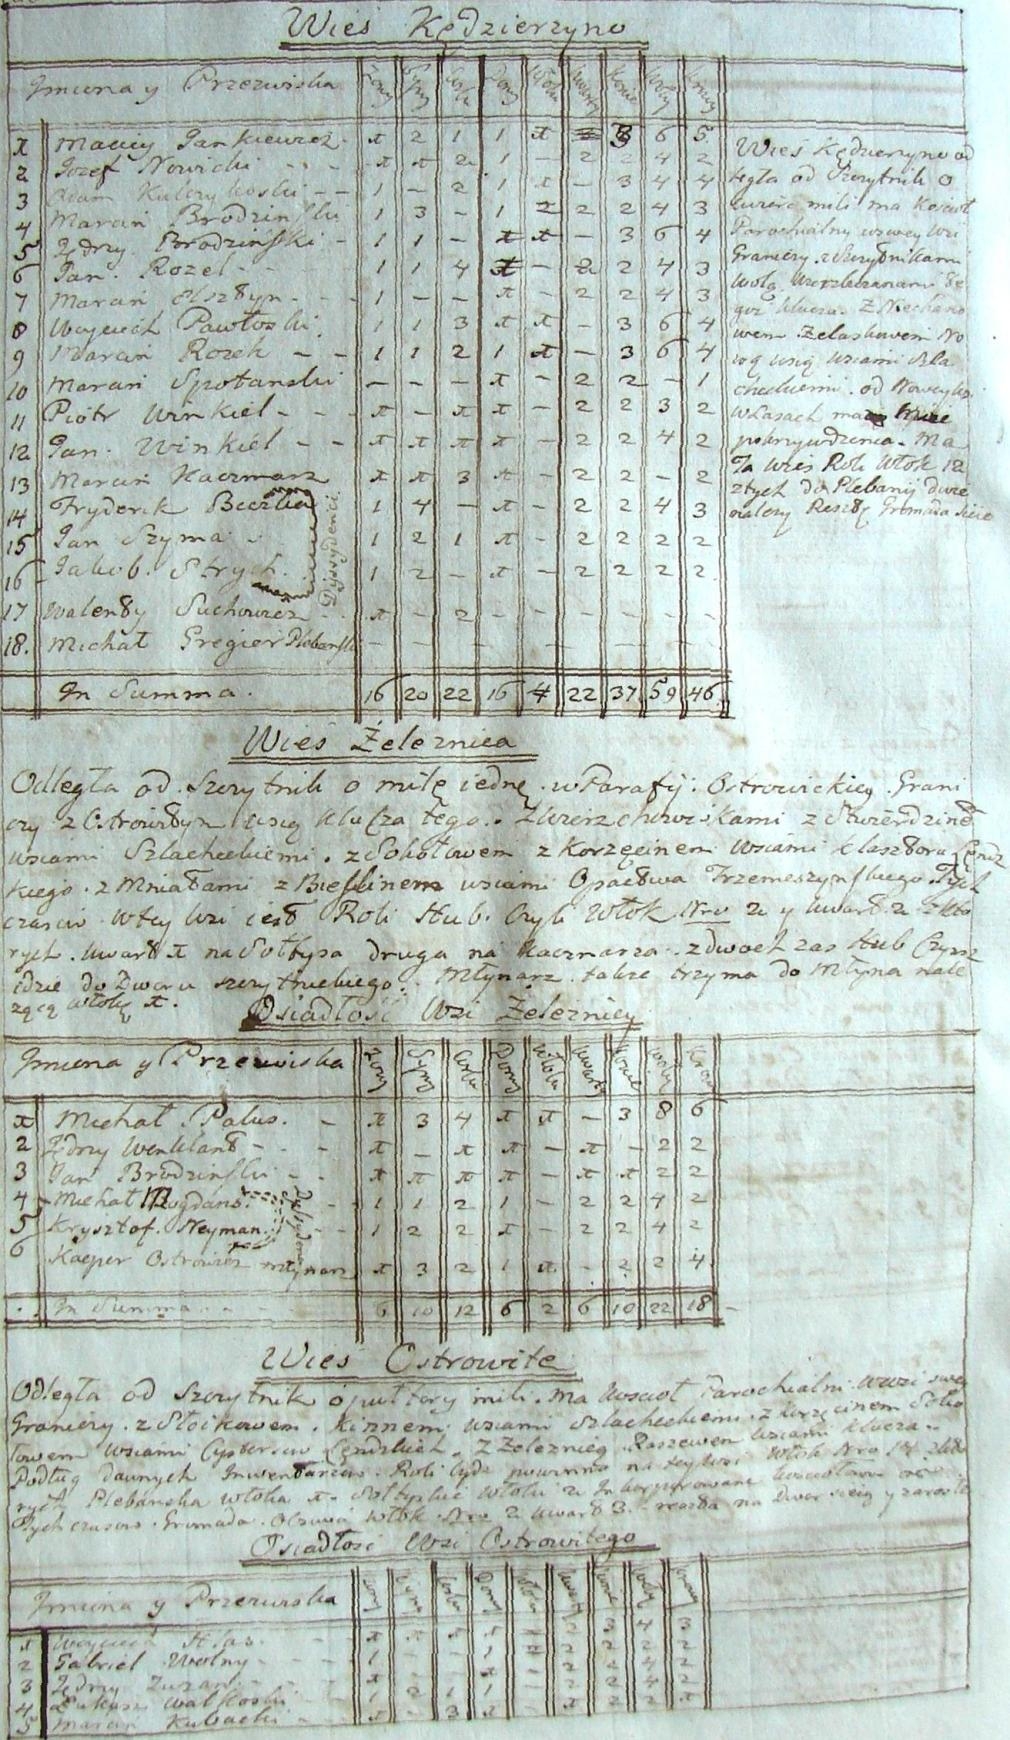 Wieś Kędzierzyno
Jmiona y Przezwiska Żony Syny Corki Domy Włoki Kwarty Konie Woły Krowy
1 Maciey Jankiewicz 1 2 1 1 1 6 5
2 Jozef Nowicki 1 1 2 1 – 2 2 4 2
3 Adam 1 – 2 1 1 – 3 4 4
4 Marcin Brodzinski 1 3 – 1 2 2 4 3
5 Jędrzy Brodziński 1 1 – 1 1 – 3 6 4
6 Jan Rozek 1 1 4 1 – 2 2 4 3
7 Marcin Elsztyn 1 – – 1 – 2 2 4 3
8 Woyciech Pawłoski 1 1 3 1 1 – 3 6 4
9 Marcin Rozek 1 1 2 1 1 – 3 6 4
10 Marcin Spotanski – – – 1 – 2 2 – 1
11 Piotr Winkiel 1 – 1 1 – 2 2 3 2
12 Jan Winkiel 1 1 1 1 – 2 2 4 2
13 Marcin Kaczmarz 1 1 3 1 – 2 2 – 2
14 Fryderik Beczka 1 4 – 1 – 2 2 4 3
15 Jan Szyma 1 2 1 1 – 2 2 2 2
16 Jakub Strych 1 2 – 1 – 2 2 2 2
Dyssydenci
17 Walenty Suchowicz 1 – 2 – – – – – –
18. Michał Gregier Plebański – – – – – – – – –
In Summa. 16 20 22 16 4 22 37 59 46
Wieś Kędzierzyno od
legła od Szczytnik o
ćwierć mili ma Kościoł
Parochialny wswey Wsi
Graniczy z Szczytnikami
Wolą
goż klucza. Z Niechano
wem Żelaskowem No
wą wsią wsiami Szla
checkiemi. od Nowey
w Lasach ma
pokrzywdzenia. Ma
Ta wieś Roli Włok 12
z tych do Plebanij dwie
należy Resztę Gromada
Wieś Żeleznica
Odległa od Szczytnik o milę iednę. w Parafij: Ostrowickiey. Grani
czy z Ostrowitym wsią klucza tego. Zwierzchowiskami z
wsiami Szlacheckiemi. z Sokołowem z Korzęcinem wsiami klasztoru
kiego. z Mniatami z Bieślinem wsiami Opactwa Trzemeszyńskiego. Tych
czasow w tey wsi iest Roli Hub. czyli Włok Nro 2 y kwart. 2 z kto
rych. kwart 1 na Sołtysa druga na kaczmarza. z dwoch zas Hub Czynsz
idzie do Dworu szczytnickiego. Młynarz także trzyma do Młyna nale
zącą włokę 1.
Osiadłość Wsi Żelezniey
Jmiona y Przezwiska Żony Syny Corki Domy Włoki Kwarty Konie Woły Krowy
1 Michał Palus. 1 3 4 1 1 – 3 8 6
2 Jędrzy Wenklant 1 – 1 1 – 1 – 2 2
3 Jan Brodziński 1 1 1 1 – 1 1 2 2
4 Michał Bogdans. 1 1 2 1 – 2 2 4 2
5 Krysztof. Neyman. 1 2 2 1 – 2 2 4 2
Dyssydenci
6 Kacper Ostrowicz młynarz 1 3 2 1 1 – 2 2 4
In Summa 6 10 12 6 2 6 10 22 18
Wieś Ostrowite
Odległa od Szczytnik o puł tory mili. Ma Kościoł Parochialni w wsi swey
Graniczy. z Słoikowem. wsiami szlacheckiemi. z Korzęcinem Soko
łowem wsiami Cystersow Lędzkich. z Żelezniey Raszewem wsiami klucza.
Podług dawnych Inwentarzow. Roli bydz powinno na tey wsi Włok Nro 14 z kto
rych Plebańska włoka 1. Sołtyskie Włoki 2 Inkorporowane kościołowi
Tych czasow. Gromada. Włok Nro 2 kwart 3. reszta na Dwor y
Osiadłość Wsi Ostrowitego
Jmiona y Przezwiska Żony Syny Corki Domy Włoki Kwarty Konie Woły Krowy
1 Woyciech
2 Gabriel Wolny
3 Jędrzy
4 Łukasz Walkoski
5 Marcin Kubacki